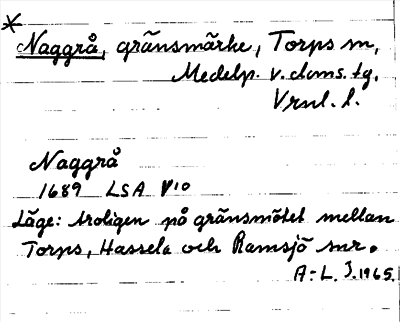 Naggrå, gränsmärke, Torps sn,
Medelp. v. doms. tg.
Vrnl. l.
Naggrå
1689 LSA V10
Läge: troligen på gränsmötet mellan
Torps, Hassela och Ramsjö snr.
A-L. J. 1965.